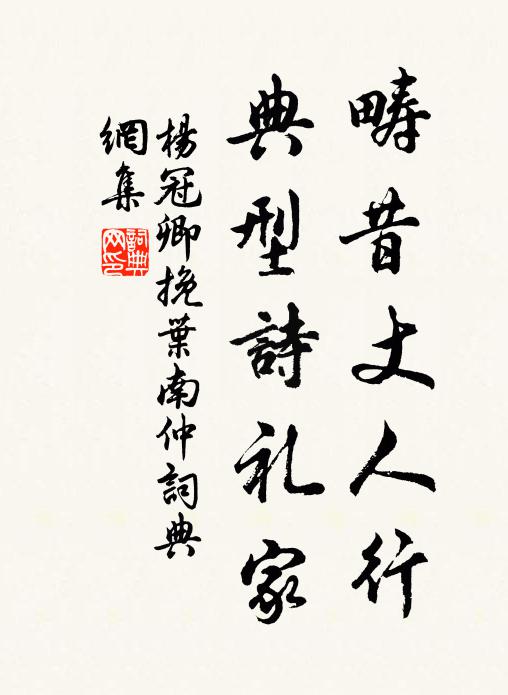 疇昔丈人行
典型詩礼家
楊冠卿挽葉南仲詞典
網集
詞典網印